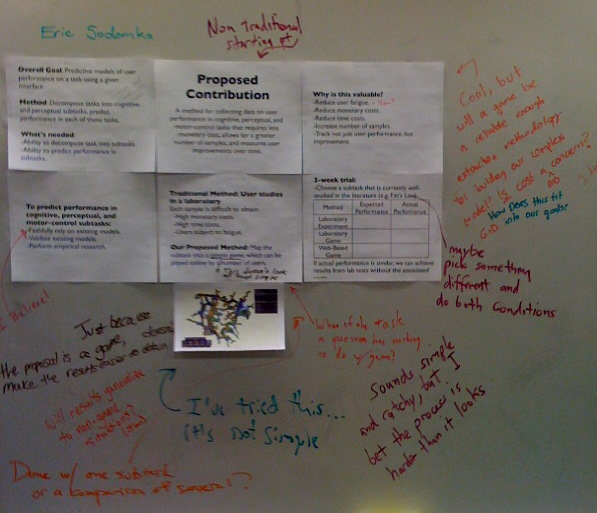 Eric Sodomka
Non Traditional
starting pt
Overall Goal: Predictive models of user
performance on a task using a given
interface.
Method: Decompose tasks into cognitive
and perceptual subtasks, predict
performance in each of these tasks.
What's needed:
-Ability to decompose task into subtasks.
-Ability to predict performance in
subtasks.
Proposed
Contribution
A method for collecting data on user
performance in cognitive, perceptual, and
motor-control tasks that requires less
monetary cost, allows for a greater
number of samples, and measures user
improvements over time.
Why is this valuable?
-Reduce user fatigue.
-Reduce monetary costs.
-Reduce time costs.
-Increase number of samples
-Track not just user performance, but
improvement.
To predict performance in
cognitive, perceptual, and
motor-control subtasks:
-Faithfully rely on existing models.
-Validate existing models.
-Perform empirical research.
Traditional Method: User studies
in a laboratory
Each sample is difficult to obtain.
-High monetary costs.
-High time costs.
-Users subject to fatigue.
Our Proposed Method: Map the
subtask into a simple game, which can be
played online by a number of users.
3-week trial:
-Choose a subtask that is currently well-
studied in the literature (e.g. Fitt's Law)
Method Expected Performance Actual Performance
Laboratory Experiment
Laboratory Game
Web-Based Game
If actual performance is similar, we can achieve
results from lab tests without the associated
Cool, but
will a game be
a reliable enough
extraction methodology
for building our complex
model? Is cost a concern?
How Does this fit
into our goals?
maybe
pick something
different and
do both conditions
I Believe!
Just because
the proposal is a game, doesn't
make the results easier to obtain
What if the task
a question has nothing
to do w/ game?
Will results generalize
to non-game
situations?
I've tried this...
it's not simple
Sounds simple
and catchy, but I
bet the process is
harder than it looks
Done w/ one subtask
or a comparison of several?